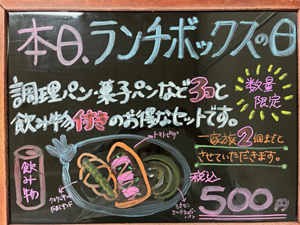 本日、ランチボックスの日
調理パン・菓子パンなど3コと
飲み物付きのお得なセットです。
数量
限定
一家族2個まで
とさせていただきます。
飲み物
トマトピザ
税込
500円